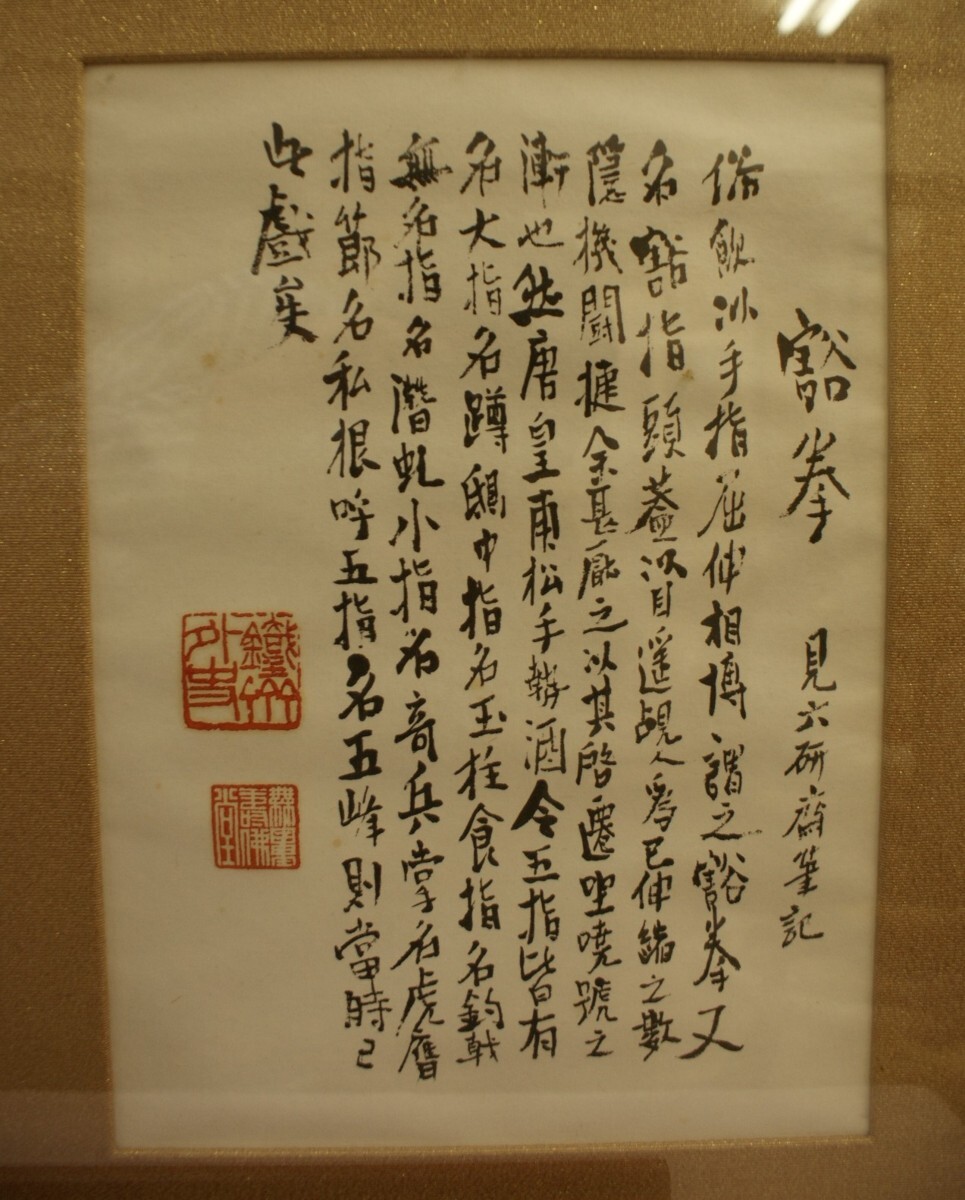 豁拳 見六研齋筆記
俗飲以手指屈伸相博謂之豁拳又
名豁指頭蓋以目遥覘人爲己伸縮之數
隱機鬬捷余甚厭之以其啓遷坐嘵號之
漸也然唐皇甫松手勢酒令五指皆有
名大指名蹲鴟中指名玉柱食指名鉤戟
無名指名潛虬小指名奇兵掌名虎膺
指節名私根呼五指名五峰則當時已
此戲矣
鐵
外史